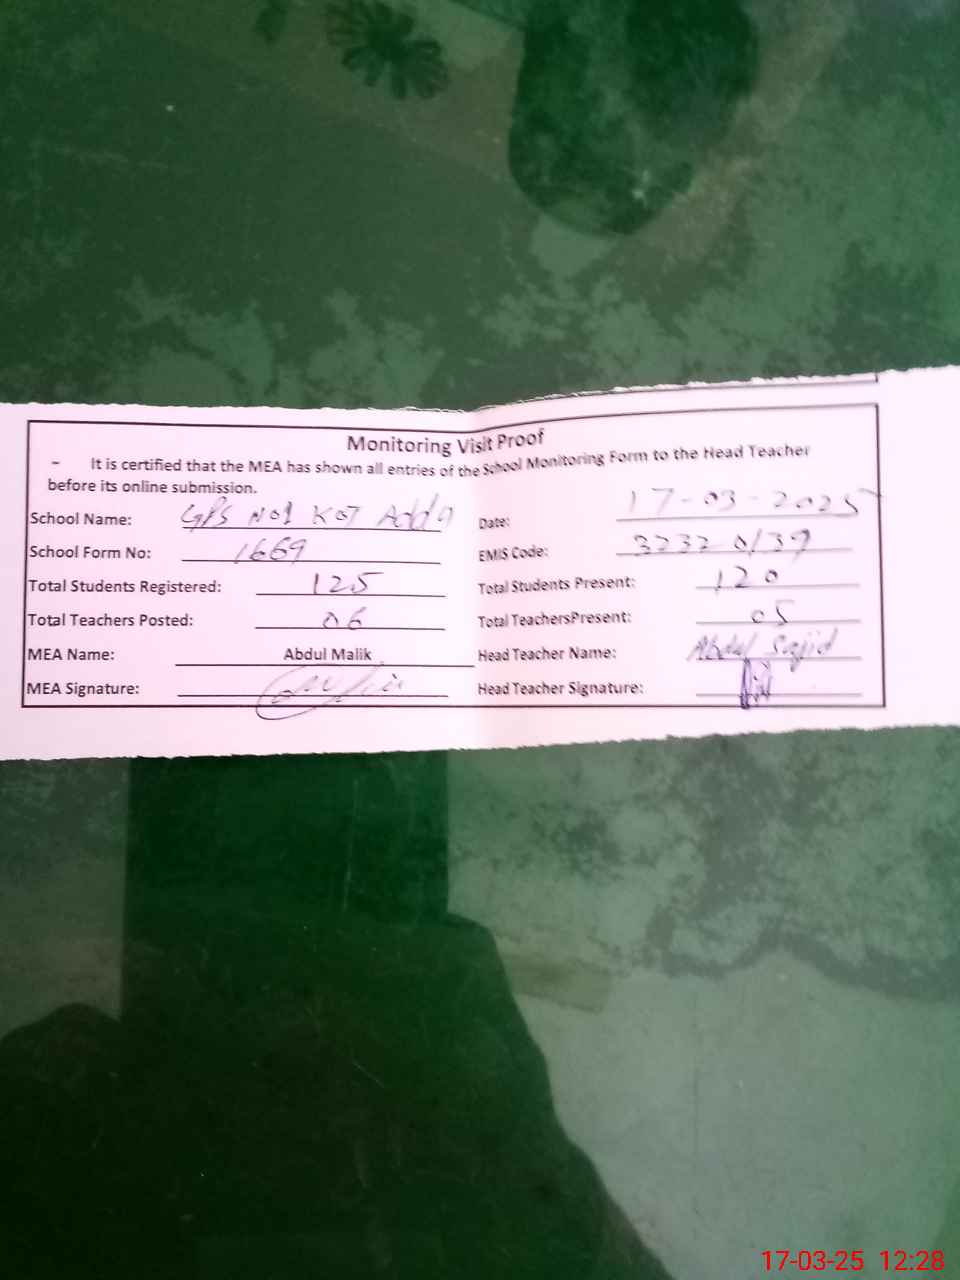 Monitoring Visit Proof
- It is certified that the MEA has shown all entries of the School Monitoring Form to the Head Teacher
before its online submission.
School Name: GPS No1 Kot Addu Date: 17-03-2025
School Form No: 1669 EMIS Code: 32320139
Total Students Registered: 125 Total Students Present: 120
Total Teachers Posted: 06 Total TeachersPresent: 05
MEA Name: Abdul Malik Head Teacher Name: Abdul Sajid
MEA Signature: Head Teacher Signature:
17-03-25 12:28